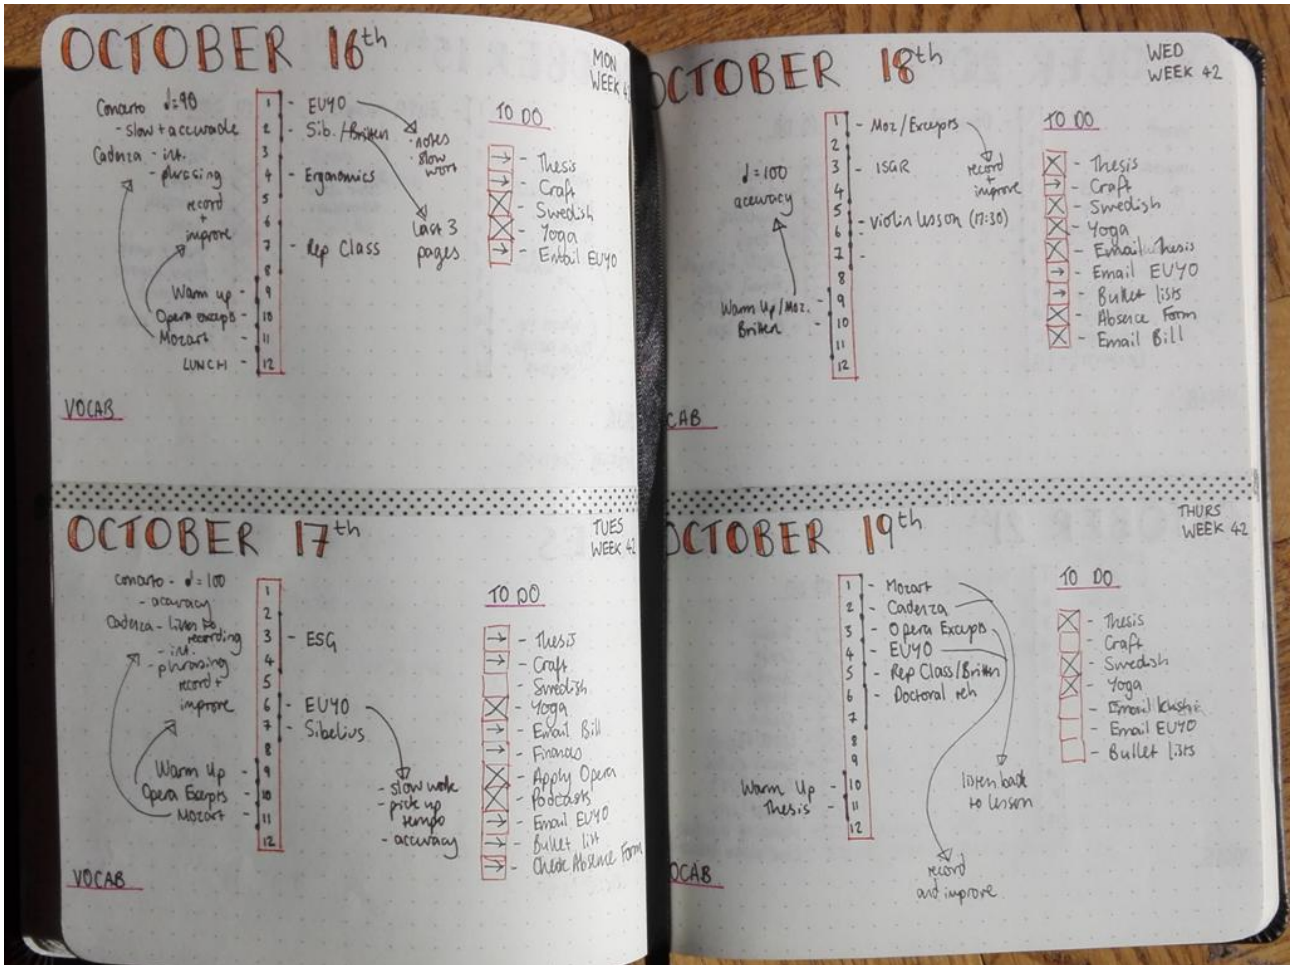 OCTOBER 16th
MON
WEEK 4
Concerto ♩=90
- slow + accurate
Cadenza - int.
- phrasing
record
+
improve
Warm up -
Opera excepts -
Mozart -
LUNCH -
1 - EUYO
2 - Sib./Britten
3
4 - Ergonomics
5
6
7 - Rep Class
8
9
10
11
12
- notes
- slow
work
last 3
pages
TO DO
→ - Thesis
→ - Craft
X - Swedish
X - Yoga
→ - Email EUYO
VOCAB
OCTOBER 17th
TUES
WEEK 42
Concerto - ♩=100
- accuracy
Cadenza - listen to
recording
- int.
- phrasing
record +
improve
Warm Up -
Opera Excepts -
Mozart -
1
2
3 - ESG
4
5
6 - EUYO
7 - Sibelius
8
9
10
11
12
- slow work
- pick up
tempo
- accuracy
TO DO
→ - Thesis
→ - Craft
- Swedish
X - Yoga
→ - Email Bill
→ - Finances
X - Apply Opera
X - Podcasts
→ - Email EUYO
→ - Bullet list
→ - Check Absence Form
VOCAB
OCTOBER 18th
WED
WEEK 42
♩=100
accuracy
Warm Up/Moz. -
Britten -
1 - Moz/Excepts
2
3 - ISGR
4
5
6 - Violin lesson (17:30)
7 -
8
9
10
11
12
record
+
improve
TO DO
X - Thesis
→ - Craft
X - Swedish
X - Yoga
X - Email Thesis
→ - Email EUYO
→ - Bullet lists
X - Absence Form
X - Email Bill
CAB
OCTOBER 19th
THURS
WEEK 42
1 - Mozart
2 - Cadenza
3 - Opera Excepts
4 - EUYO
5 - Rep Class/Britten
6 - Doctoral reh
7
8
9
10
11
12
Warm Up -
Thesis -
listen back
to lesson
record
and improve
TO DO
X - Thesis
- Craft
X - Swedish
X - Yoga
- Email
- Email EUYO
- Bullet lists
OCAB